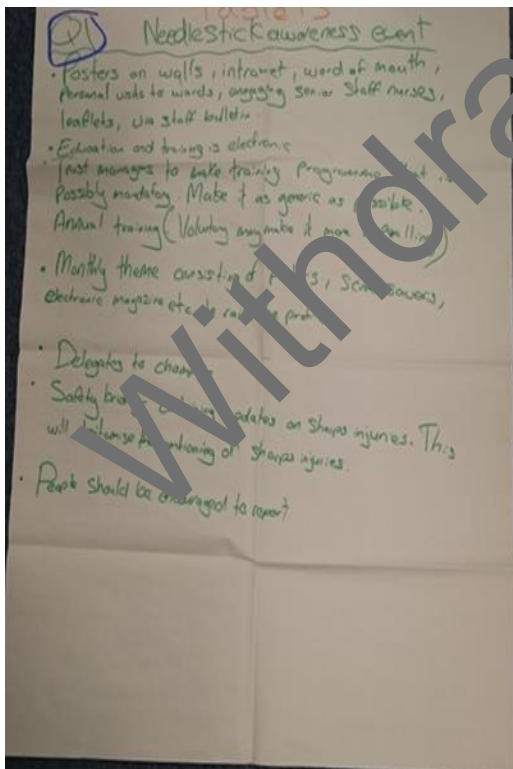 Q1 Needlestick awareness event
• Posters on walls, intranet, word of mouth,
Personal visits to wards, engaging senior staff nurses,
leaflets, via staff bulletin
• Education and training is electronic
Trust managers to make training programme that is
Possibly mandatory. Make it as generic as possible.
Annual training (Voluntary may make it more
• Monthly theme consisting of
electronic magazine etc. to
• Delegates to
• Safety updates on sharps injuries. This
will of sharps injuries.
• People should be encouraged to report
Withdra